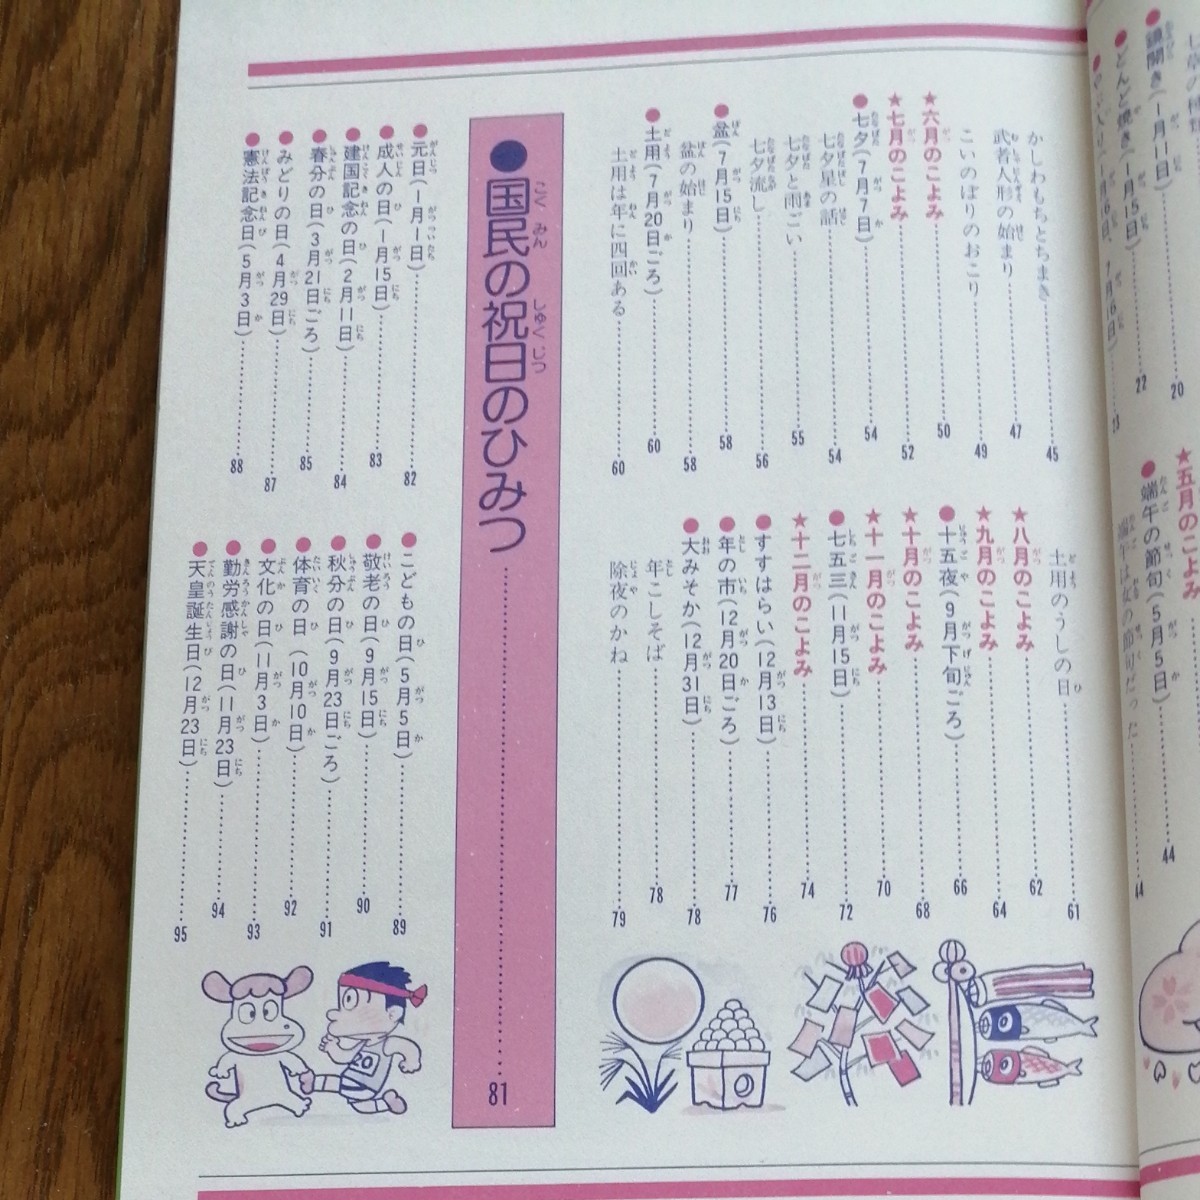 鏡開き(1月11日) 20
どんど焼き(1月15日) 22
23
★五月のこよみ
端午の節句(5月5日) 44
端午は女の節句だった 44
かしわもちとちまき 45
武者人形の始まり 47
こいのぼりのおこり 49
★六月のこよみ 50
★七月のこよみ 52
●七夕(7月7日) 54
七夕星の話 54
七夕と雨ごい 55
七夕流し 56
●盆(7月15日) 58
盆の始まり 58
●土用(7月20日ごろ) 60
土用は年に四回ある 60
土用のうしの日 61
★八月のこよみ 62
★九月のこよみ 64
●十五夜(9月下旬ごろ) 66
★十月のこよみ 68
★十一月のこよみ 70
●七五三(11月15日) 72
★十二月のこよみ 74
●すすはらい(12月13日) 76
●年の市(12月20日ごろ) 77
●大みそか(12月31日) 78
年こしそば 78
除夜のかね 79
●国民の祝日のひみつ 81
●元日(1月1日) 82
●成人の日(1月15日) 83
●建国記念の日(2月11日) 84
●春分の日(3月21日ごろ) 85
●みどりの日(4月29日) 87
●憲法記念日(5月3日) 88
●こどもの日(5月5日) 89
●敬老の日(9月15日) 90
●秋分の日(9月23日ごろ) 91
●体育の日(10月10日) 92
●文化の日(11月3日) 93
●勤労感謝の日(11月23日) 94
●天皇誕生日(12月23日) 95
20